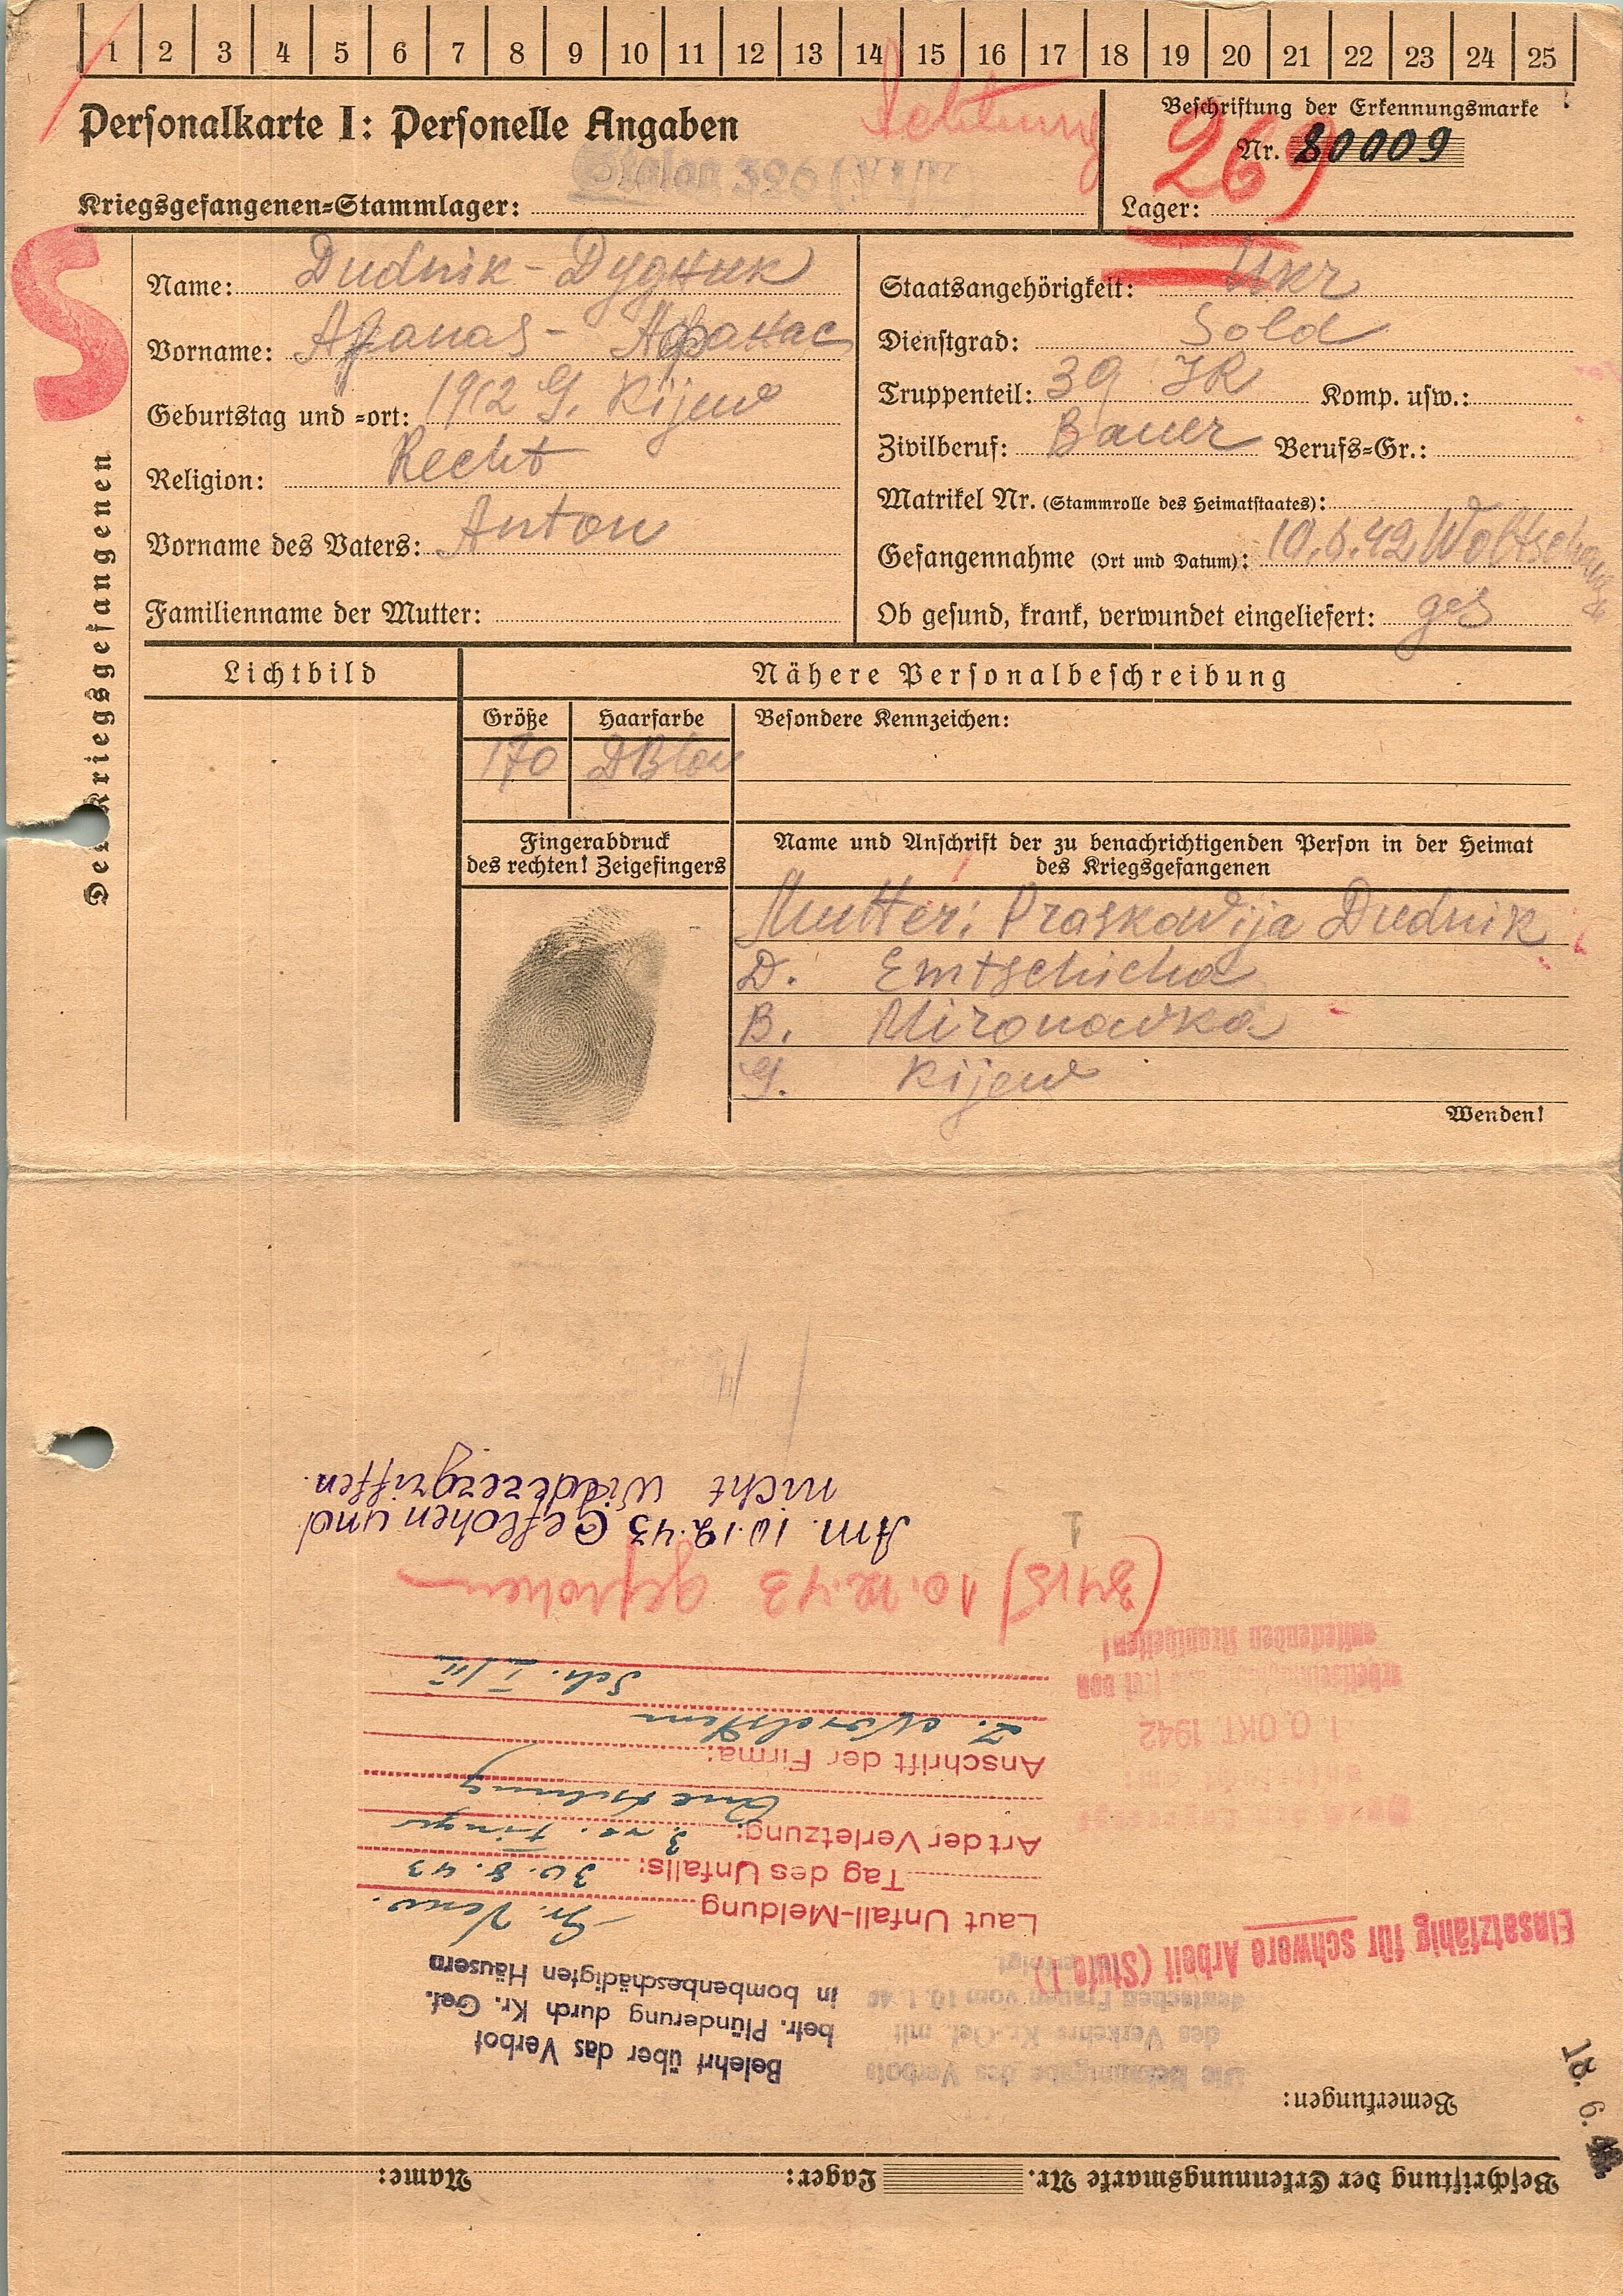 1 2 3 4 5 6 7 8 9 10 11 12 13 14 15 16 17 18 19 20 21 22 23 24 25
Personalkarte I: Personelle Angaben
Achtung
Beschriftung der Erkennungsmarke
Nr. 80009
269
Stalag 326 (VI K)
Kriegsgefangenen=Stammlager:
Lager:
S
Des Kriegsgefangenen
Name: Dudnik - Дудник
Vorname: Afanas - Афанас
Geburtstag und =ort: 1912 G. Kijew
Religion: Recht
Vorname des Vaters: Anton
Familienname der Mutter:
Staatsangehörigkeit: Ukr
Dienstgrad: Sold
Truppenteil: 39 IR Komp. usw.:
Zivilberuf: Bauer Berufs=Gr.:
Matrikel Nr. (Stammrolle des Heimatstaates):
Gefangennahme (Ort und Datum): 10.6.42 Woltschansk
Ob gesund, krank, verwundet eingeliefert: ges
Lichtbild
Nähere Personalbeschreibung
Größe Haarfarbe Besondere Kennzeichen:
170 DBlon
Fingerabdruck
des rechten! Zeigefingers
Name und Anschrift der zu benachrichtigenden Person in der Heimat
des Kriegsgefangenen
Mutter: Praskowija Dudnik
D. Emtschicha
B. Mironowka
G. Kijew
Wenden!
Beschriftung der Erkennungsmarke Nr. Lager: Name:
Bemerkungen:
18. 6.
Belehrt über das Verbot
betr. Plünderung durch Kr. Gef.
in bombenbeschädigten Häusern
des Verkehrs Kr.-Gef. mit
deutschen Frauen vom 10. 1. 40
Einsatzfähig für schwere Arbeit (Stufe I)
Laut Unfall-Meldung
Tag des Unfalls: 30.8.43
Art der Verletzung: 3. re. Finger
Quetschung
Anschrift der Firma:
Z. Nordstern
Sch. I/II
1 0. OKT. 1942
ansteckenden Krankheiten!
(3415) 10.12.43 geflohen
1
Am. 10.12.43 Geflohen und
nicht Widerergriffen.